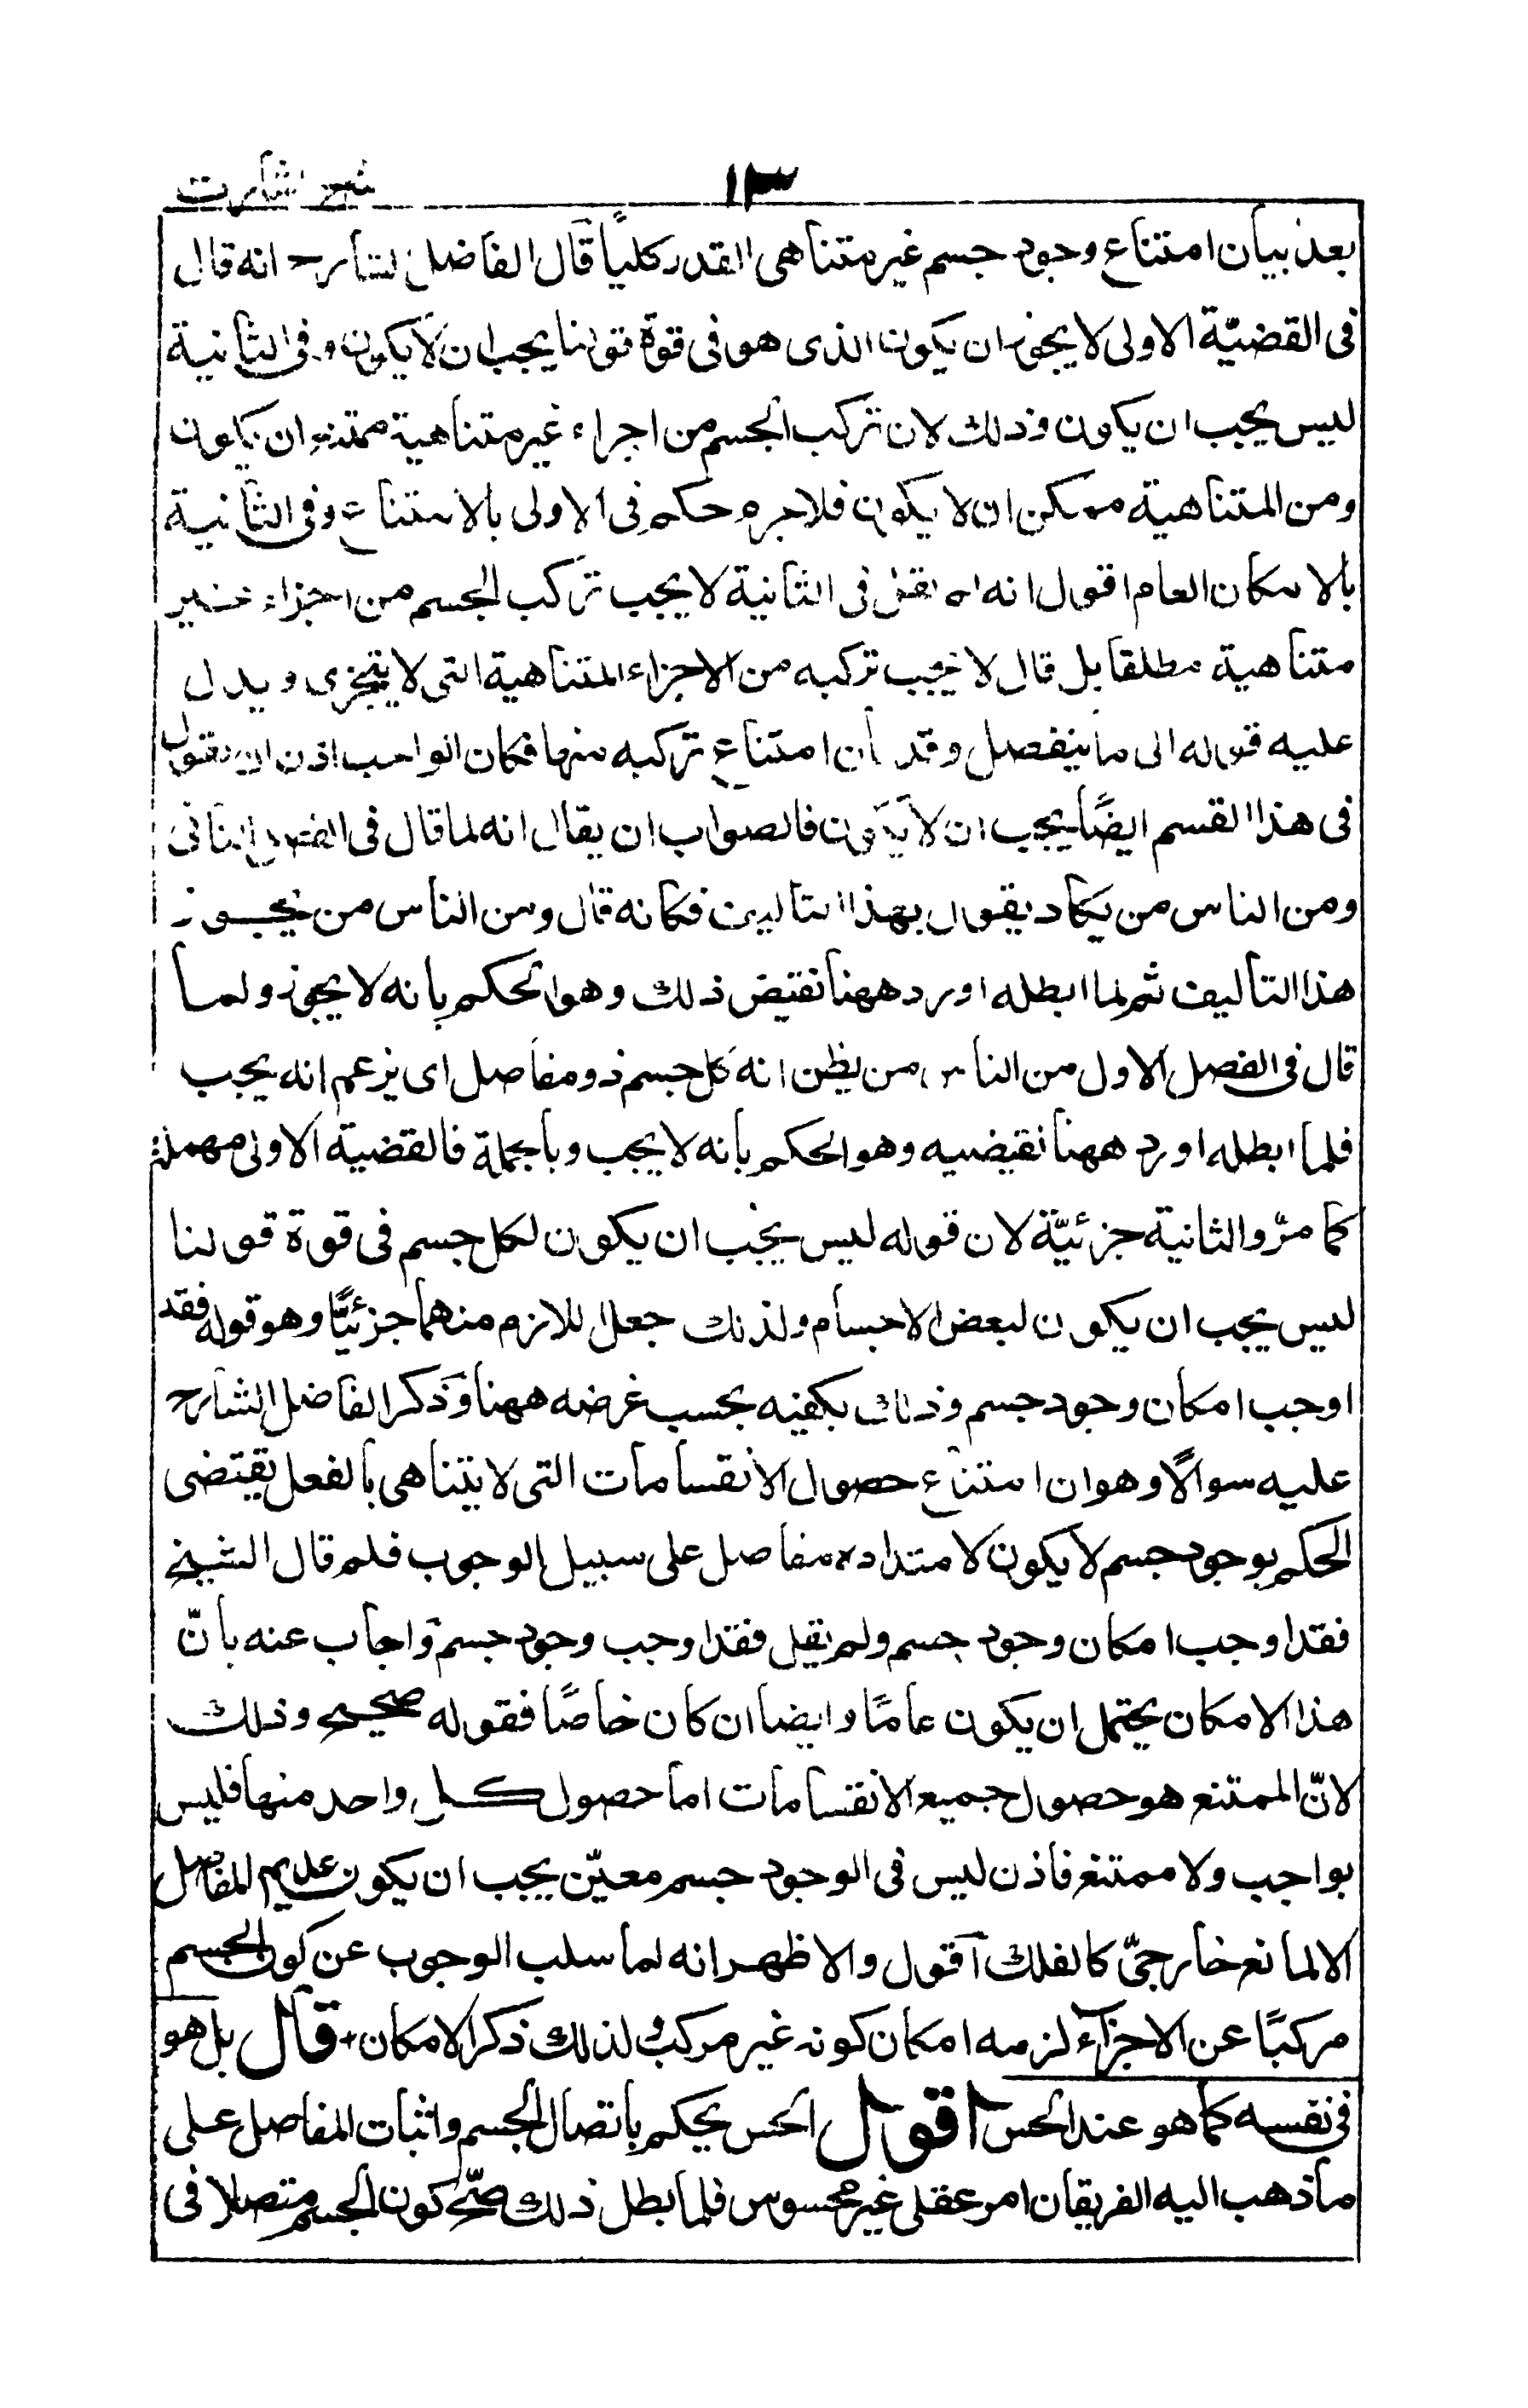 ١٣
بعد بيان امتناع وجود جسم غير متناهى القدر كلياً قال الفاضل الشارح انه قال
فى القضيّة الاولى لا يجوز ان يكون الذى هو فى قوة قولنا يجب ان لا يكون وفى الثانية
ليس يجب ان يكون وذلك لان تركب الجسم من اجزاء غير متناهية ممتنع ان يكون
ومن المتناهية ممكن ان لا يكون فلاجرم حكم فى الاولى بالامتناع وفى الثانية
بالامكان العام اقول انه لم يقل فى الثانية لا يجب تركب الجسم من اجزاء غير
متناهية مطلقا بل قال لا يجب تركبه من الاجزاء المتناهية التى لا يتجزى ويدل
عليه قوله الى ما ينفصل وقد بان امتناع تركبه منها فكان الواجب اذن ان يقول
فى هذا القسم ايضًا يجب ان لا يكون فالصواب ان يقال انه لما قال فى الفصل الثانى
ومن الناس من يكاد يقول بهذا التاليف فكانه قال ومن الناس من يجوز
هذا التاليف ثم لما ابطله اورد ههنا نقيض ذلك وهو الحكم بانه لا يجوز ولما
قال فى الفصل الاول من الناس من يظن انه كل جسم ذو مفاصل اى يزعم انه يجب
فلما ابطله اورد ههنا نقيضيه وهو الحكم بانه لا يجب وبالجملة فالقضية الاولى مهملة
كما مرّ والثانية جزئيّة لان قوله ليس يجب ان يكون لكل جسم فى قوة قولنا
ليس يجب ان يكون لبعض الاجسام ولذلك جعل اللازم منهما جزئيًّا وهو قوله فقد
اوجب امكان وجود جسم وذلك يكفيه بحسب غرضه ههنا وذكر الفاضل الشارح
عليه سوالًا وهو ان امتناع حصول الانقسامات التى لا يتناهى بالفعل يقتضى
الحكم بوجود جسم لا يكون لامتداده مفاصل على سبيل الوجوب فلم قال الشيخ
فقد اوجب امكان وجود جسم ولم يقل فقد اوجب وجود جسم واجاب عنه بانّ
هذا الامكان يحتمل ان يكون عامًا وايضا ان كان خاصًا فقوله صحيح وذلك
لانّ الممتنع هو حصول جميع الانقسامات اما حصول كل واحد منها فليس
بواجب ولا ممتنع فاذن ليس فى الوجود جسم معيّن يجب ان يكون عديم المفاصل
الا لمانع خارجىّ كالفلك اقول والاظهر انه لما سلب الوجوب عن كون الجسم
مركبًا عن الاجزاء لزمه امكان كونه غير مركب ولذلك ذكر الامكان + قال بل هو
فى نفسه كما هو عند الحس اقول الحس يحكم باتصال الجسم واثبات المفاصل على
ما ذهب اليه الفريقان امر عقلى غير محسوس فلما بطل ذلك صحّ كون الجسم متصلا فى